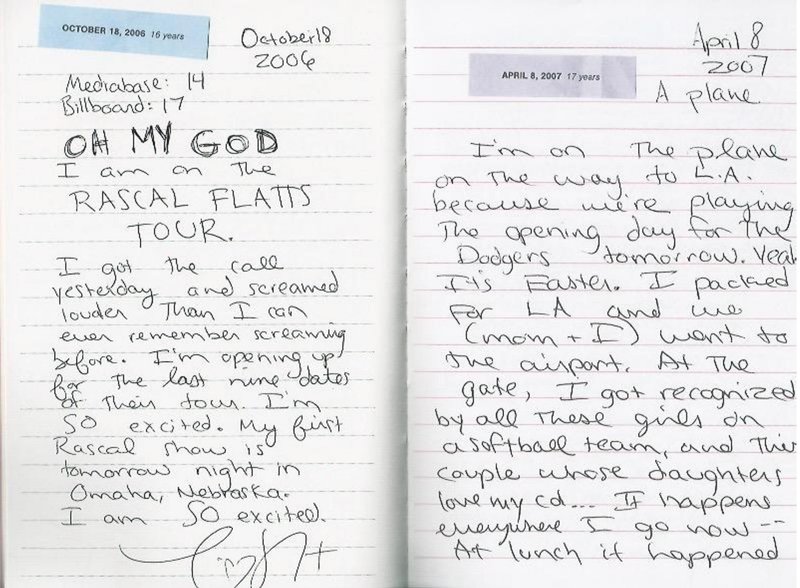 OCTOBER 18, 2006 16 years
October 18
2006
Mediabase: 14
Billboard: 17
OH MY GOD
I am on the
RASCAL FLATTS
TOUR.
I got the call
yesterday and screamed
louder than I can
ever remember screaming
before. I'm opening up
for the last nine dates
of their tour. I'm
SO excited. My first
Rascal show is
tomorrow night in
Omaha, Nebraska.
I am SO excited.
April 8
2007
APRIL 8, 2007 17 years
A plane
I'm on the plane
on the way to L.A.
because we're playing
the opening day for the
Dodgers tomorrow. Yeah
It's Easter. I packed
for LA and we
(mom + I) went to
the airport. At the
gate, I got recognized
by all these girls on
a softball team, and this
couple whose daughters
love my cd... It happens
everywhere I go now --
At lunch it happened